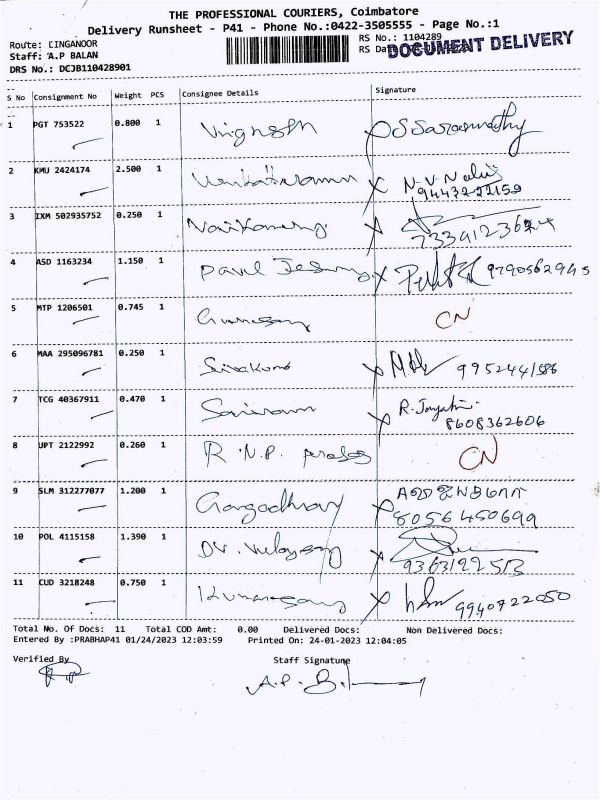 THE PROFESSIONAL COURIERS, Coimbatore
Delivery Runsheet - P41 - Phone No.:0422-3505555 - Page No.:1
Route: LINGANOOR
RS No.: 1104289
Staff: A.P BALAN
RS Da
DOCUMENT DELIVERY
DRS No.: DCJB110428901
S No Consignment No Weight PCS Consignee Details Signature
1 PGT 753522 0.800 1 Vignesh S Saraswathy
2 KMU 2424174 2.500 1 N.V.
9443222159
3 IXM 502935752 0.250 1
4 ASD 1163234 1.150 1 Paul 9790562945
5 MTP 1206501 0.745 1 CN
6 MAA 295096781 0.250 1 9952441586
7 TCG 40367911 0.470 1 Sairam R.
8608362606
8 UPT 2122992 0.260 1 R.N.P. CN
9 SLM 312277077 1.200 1 Gangadhar
8056450699
10 POL 4115158 1.390 1
11 CUD 3218248 0.750 1 9940722050
Total No. Of Docs: 11 Total COD Amt: 0.00 Delivered Docs: Non Delivered Docs:
Entered By :PRABHAP41 01/24/2023 12:03:59 Printed On: 24-01-2023 12:04:05
Verified By Staff Signature
A.P.